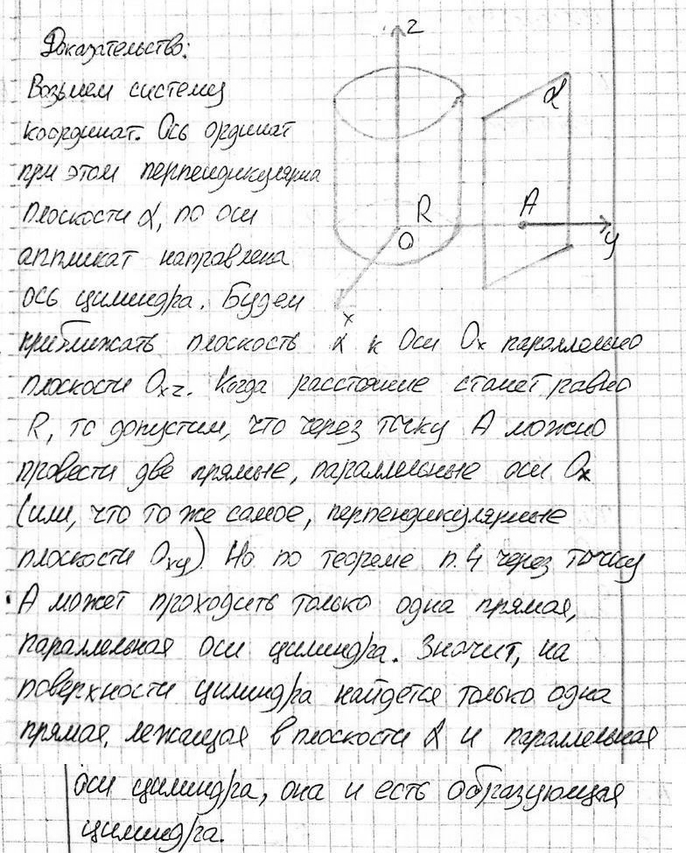 Доказательство:
Возьмем систему
координат. Ось ординат
при этом перпендикулярна
плоскости α, по оси
аппликат направлена
ось цилиндра. Будем
приближать плоскость α к оси Ox параллельно
плоскости Oxz. Когда расстояние станет равно
R, то допустим, что через точку A можно
провести две прямые, параллельные оси Ox
(или, что то же самое, перпендикулярные
плоскости Oxy). Но по теореме п.4 через точку
A может проходить только одна прямая,
параллельная оси цилиндра. Значит, на
поверхности цилиндра найдется только одна
прямая, лежащая в плоскости α и параллельная
оси цилиндра, она и есть образующая
цилиндра.
z
α
R
A
O
y
x